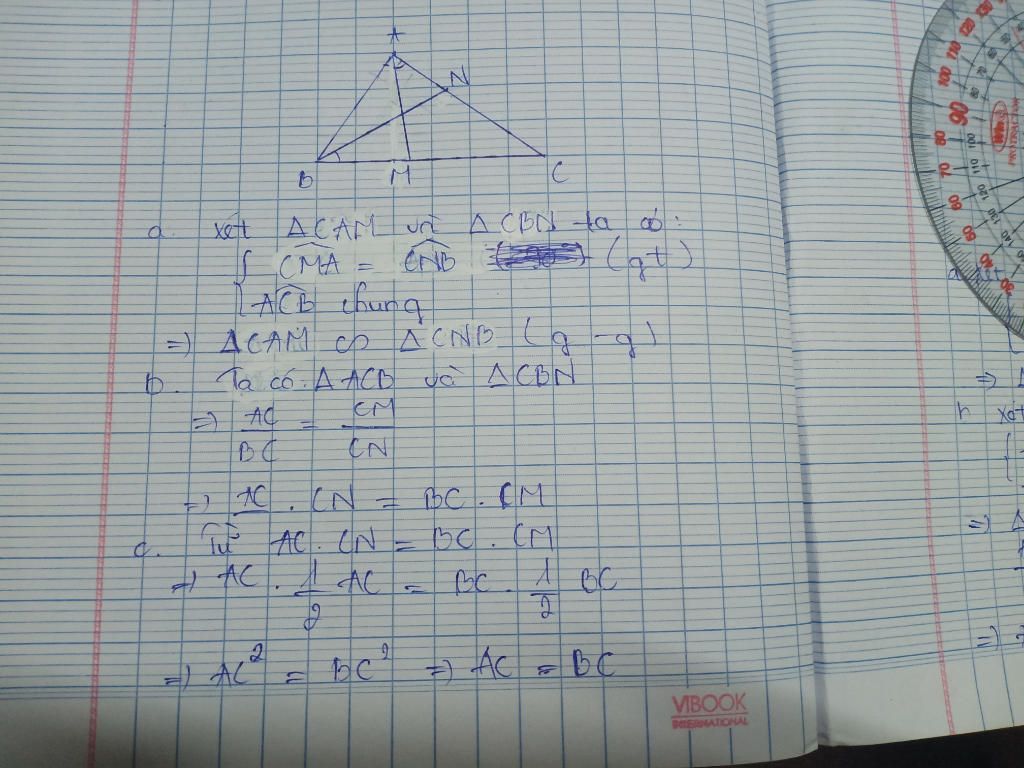 A
N
B M C
a. xét ΔCAM và ΔCBN ta có:
{ CMA = CNB (gt)
ACB chung
=> ΔCAM ∽ ΔCNB (g-g)
b. Ta có: ΔACB và ΔCBN
=> AC/BC = CM/CN
=> AC . CN = BC . CM
c. Từ AC . CN = BC . CM
=> AC . 1/2 AC = BC . 1/2 BC
=> AC² = BC² => AC = BC
VIBOOK
INTERNATIONAL
=> Δ
xét
=>
=>
130
120
110
100
90
80
70
60